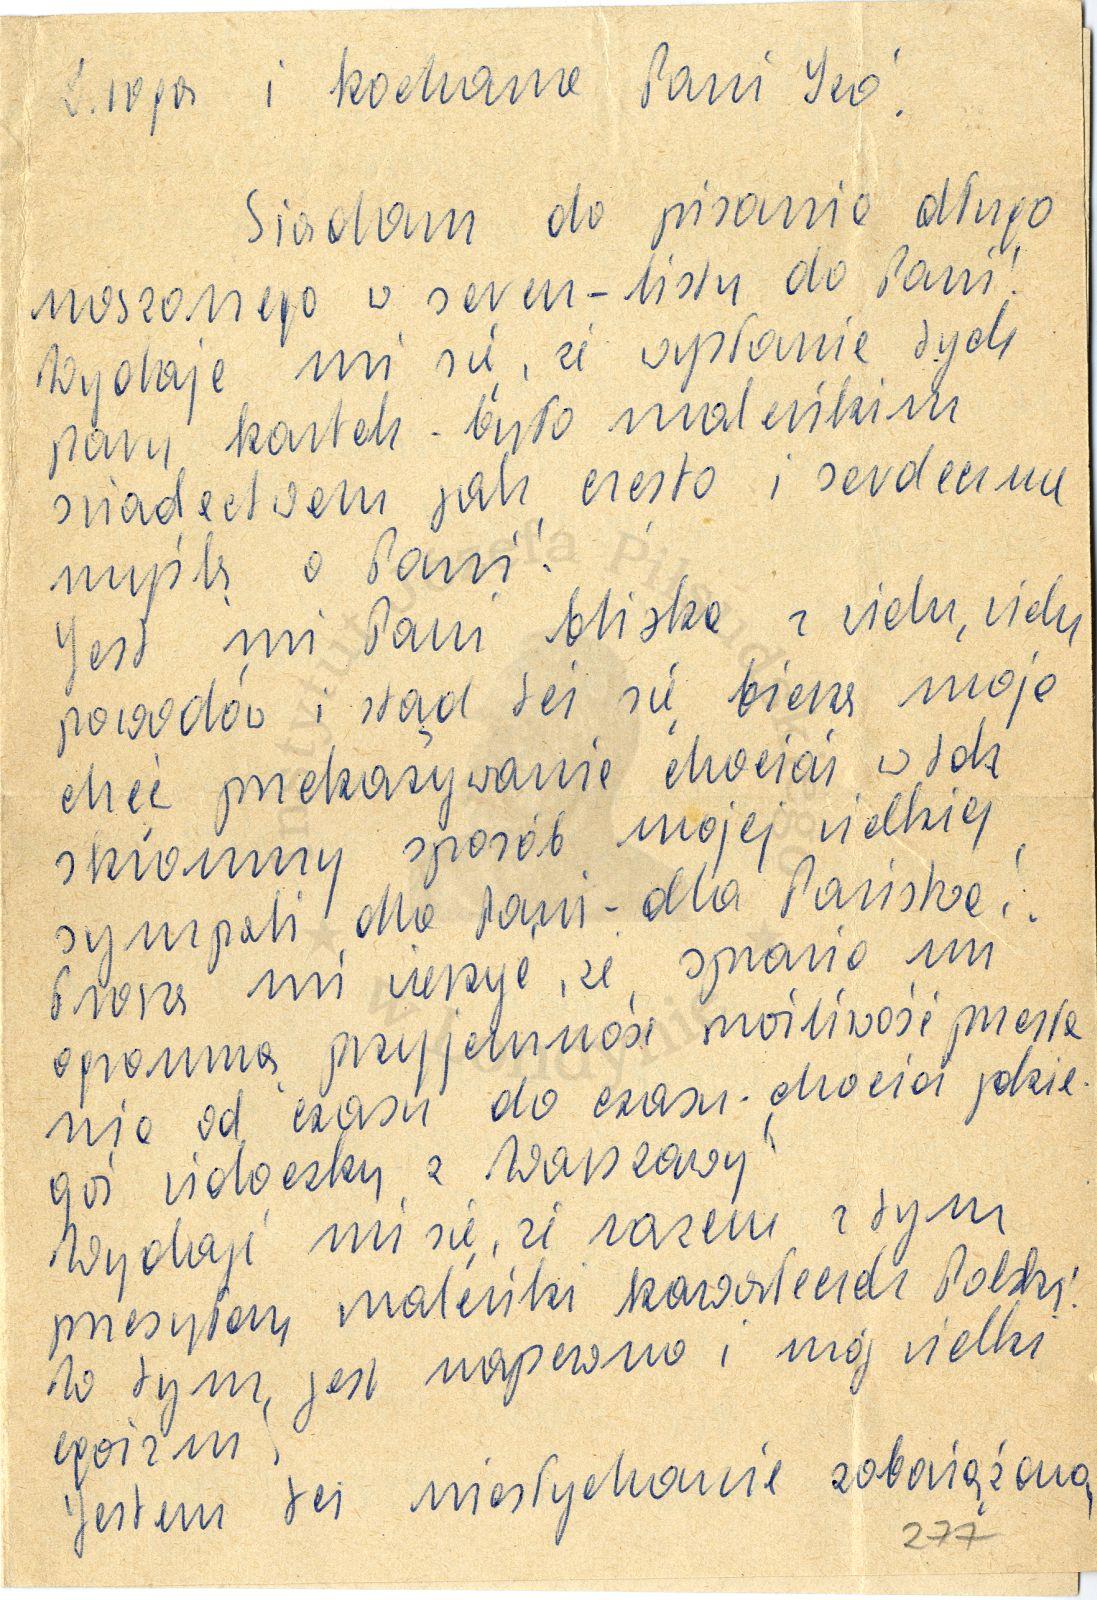 Droga i kochana Pani Izo!
Siadam do pisania długo
noszonego w sercu – listu do Pani!
Wydaje mi się, że wysłanie tych
paru kartek – było maleńkim
świadectwem jak często i serdecznie
myślę o Pani!
Jest mi Pani bliska z wielu, wielu
powodów i stąd też się bierze moja
chęć przekazywania chociaż w tak
skromny sposób mojej wielkiej
sympatii dla Pani – dla Państwa!
Proszę mi wierzyć, że sprawia mi
ogromną przyjemność możliwość przesła
nia od czasu do czasu – chociaż jakie
goś widoczku z Warszawy!
Wydaje mi się, że razem z tym
przesyłam maleńki kawałeczek Polski!
W tym jest napewno i mój wielki
egoizm!
Jestem też niesłychanie zobowiązana
277
Instytut Józefa Piłsudskiego
w Londynie